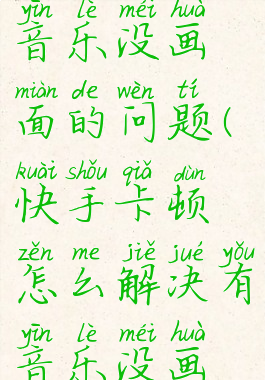 yīn lè méi huà
音乐没画
miàn de wèn tí
面的问题(
kuài shǒu qiǎ dùn
快手卡顿
zěn me jiě jué yǒu
怎么解决有
yīn lè méi huà
音乐没画